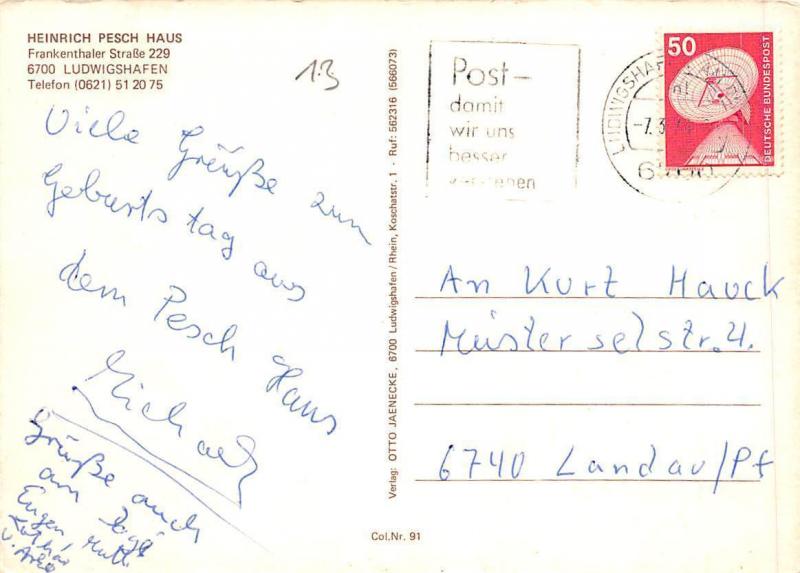 HEINRICH PESCH HAUS
Frankenthaler Straße 229
6700 LUDWIGSHAFEN
Telefon (0621) 51 20 75
1.3
Viele Grüße zum
Geburtstag aus
dem Pesch Haus
Michael
Grüße auch
an
Eugen, Mutti
u.
Verlag: OTTO JAENECKE, 6700 Ludwigshafen/Rhein, Koschatstr. 1 · Ruf: 562316 (566073)
Col.Nr. 91
Post-
damit
wir uns
besser
verstehen
LUDWIGSHAFEN
-7.3.
50
DEUTSCHE BUNDESPOST
An Kurt Hauck
Münsterselstr. 4.
6740 Landau/Pf